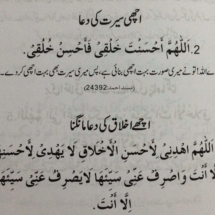 اچھی سیرت کی دعا
2. اَللّٰهُمَّ اَحْسَنْتَ خَلْقِىْ فَاَحْسِنْ خُلُقِىْ.
اے اللہ! تو نے میری صورت بہت اچھی بنائی ہے، پس میری سیرت بھی بہت اچھی کر دے۔
(مسند احمد:24392)
اچھے اخلاق کی دعا مانگنا
اَللّٰهُمَّ اهْدِنِىْ لِاَحْسَنِ الْاَخْلَاقِ لَا يَهْدِىْ لِاَحْسَنِهَا
اِلَّا اَنْتَ وَاصْرِفْ عَنِّىْ سَيِّئَهَا لَا يَصْرِفُ عَنِّىْ سَيِّئَهَا
اِلَّا اَنْتَ.